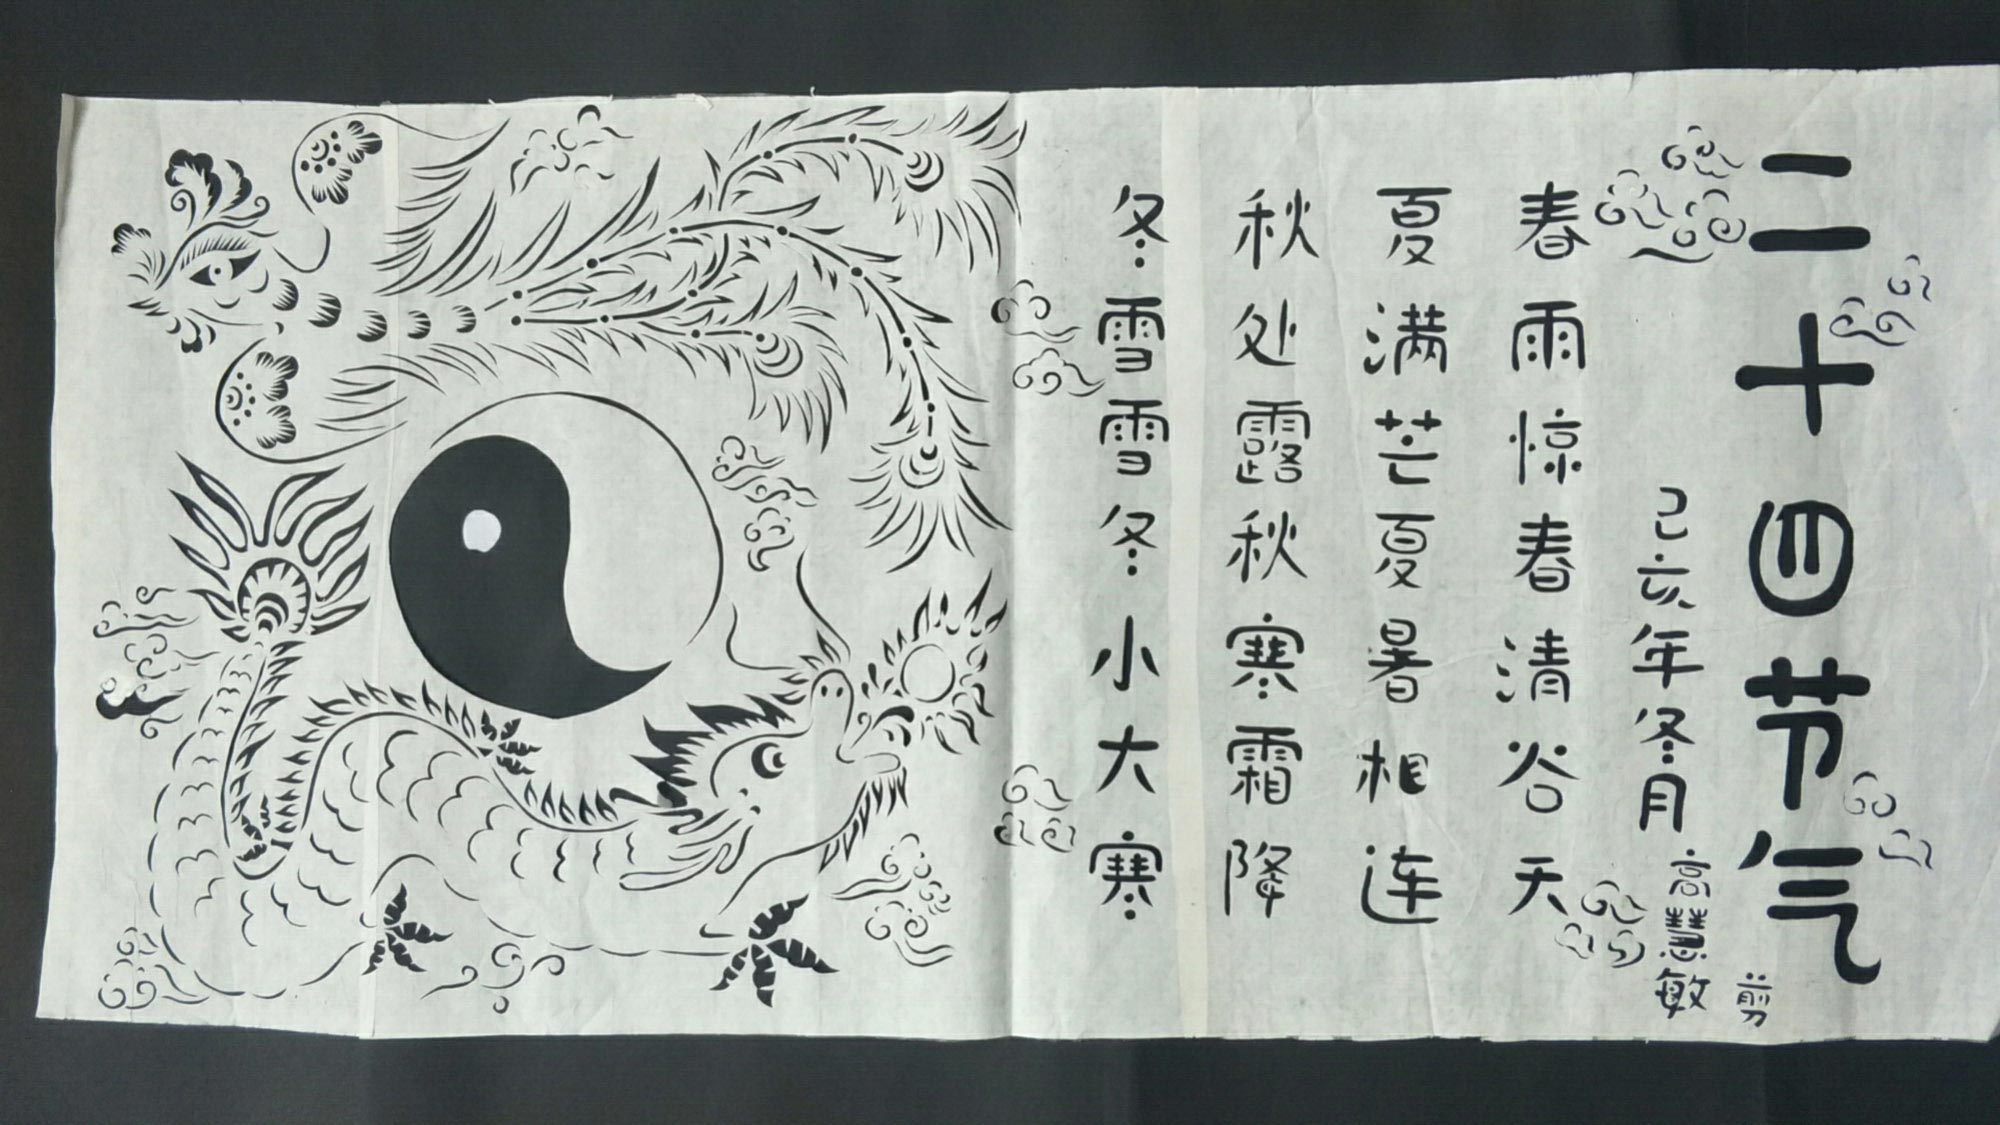 二十四节气
己亥年冬月
高慧敏
剪
春雨惊春清谷天
夏满芒夏暑相连
秋处露秋寒霜降
冬雪雪冬小大寒